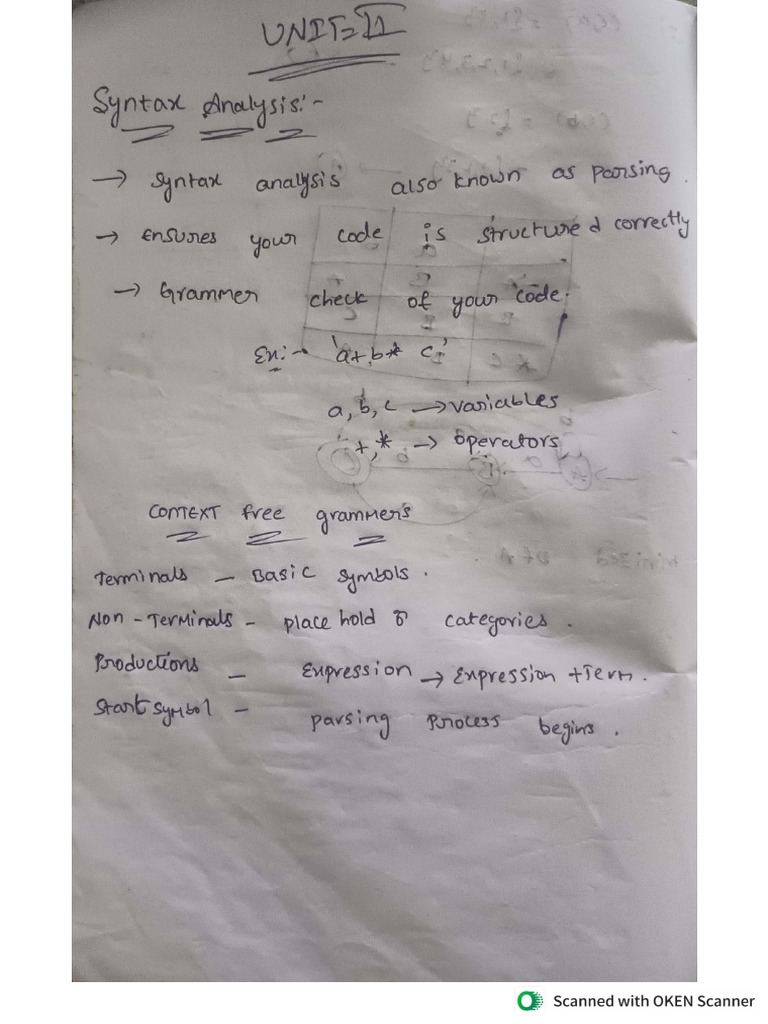 UNIT-II
Syntax Analysis:-
→ Syntax analysis also known as parsing.
→ Ensures your code is structured correctly
→ Grammer check of your code.
Ex:- 'a+b* c'
a, b, c → variables
+,* → operators
CONTEXT free grammers
Terminals - Basic symbols.
Non-Terminals - place hold & categories.
Productions - Expression → Expression + Term.
Start symbol - parsing process begins.
Scanned with OKEN Scanner